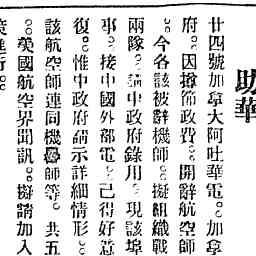 助華
廿四號加拿大阿吐華電。加拿
府。因撙節政費。開辭航空師
。今各該被辭機師。擬組織戰
兩隊。請中政府錄用。現該埠
事。接中國外部電。已得好意
復。惟中政府請示詳細情形。
該航空師連同機師等。共五
。英國航空界聞訊。擬請加入